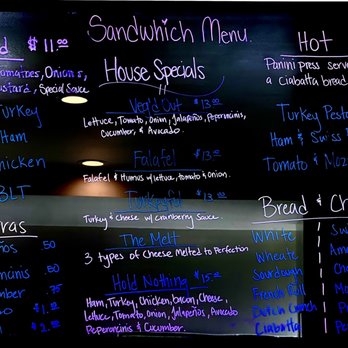 Sandwhich Menu.
$ 11.00
Onions,
Special Sauce
Turkey
Ham
BLT
.50
.50
.75
House Specials
Veg'd Out $ 13.00
Lettuce, Tomato, Onion, Jalapeños, Peperoncinis,
Cucumber, & Avocado.
Falafel $ 13.00
Falafel & Humus w/ lettuce, tomato & onion.
Turkey & Cheese w/ Cranberry Sauce.
The Melt
3 types of Cheese Melted to Perfection
Hold Nothing $15.00
Ham, Turkey, Chicken, bacon, Cheese,
Lettuce, Tomato, Onion, Jalapeños, Avocado
Peperoncini & Cucumber.
Hot
Panini press
a Ciabatta bread
Turkey
Ham & Swiss
Tomato &
Bread &
White
Wheate
Sourdough
French Roll
Dutch Crunch
Ciabatta